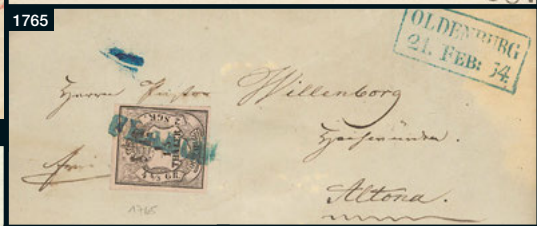 1765
OLDENBURG
21. FEB: 54.
Herrn Pastor Willenborg
Hochwürden.
frei
Altona.
1765